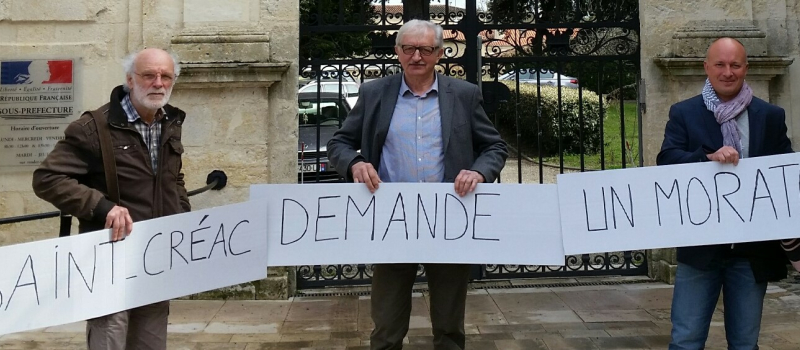 Liberté • Égalité • Fraternité
RÉPUBLIQUE FRANÇAISE
SOUS-PRÉFECTURE
Horaires d'ouverture
MARDI
SAINT-CRÉAC DEMANDE UN MORAT